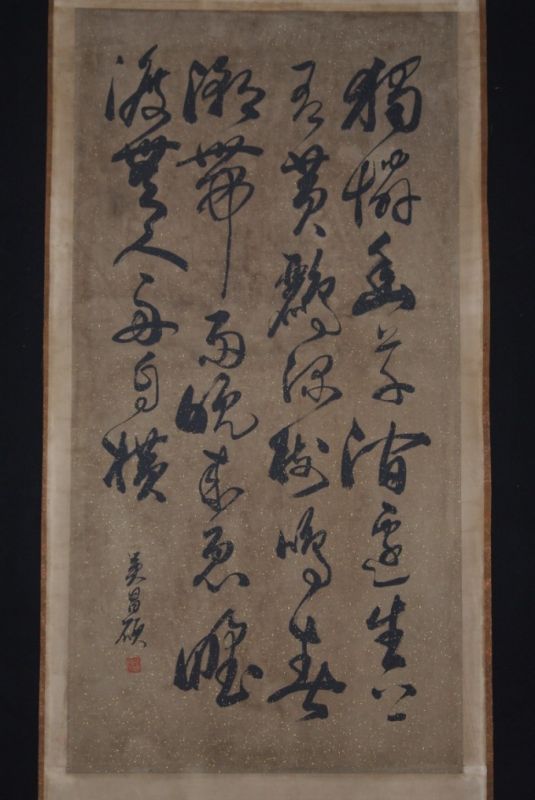 獨憐幽草澗邊生上
有黃鸝深樹鳴春
潮帶雨晚來急野
渡無人舟自橫
吳昌碩